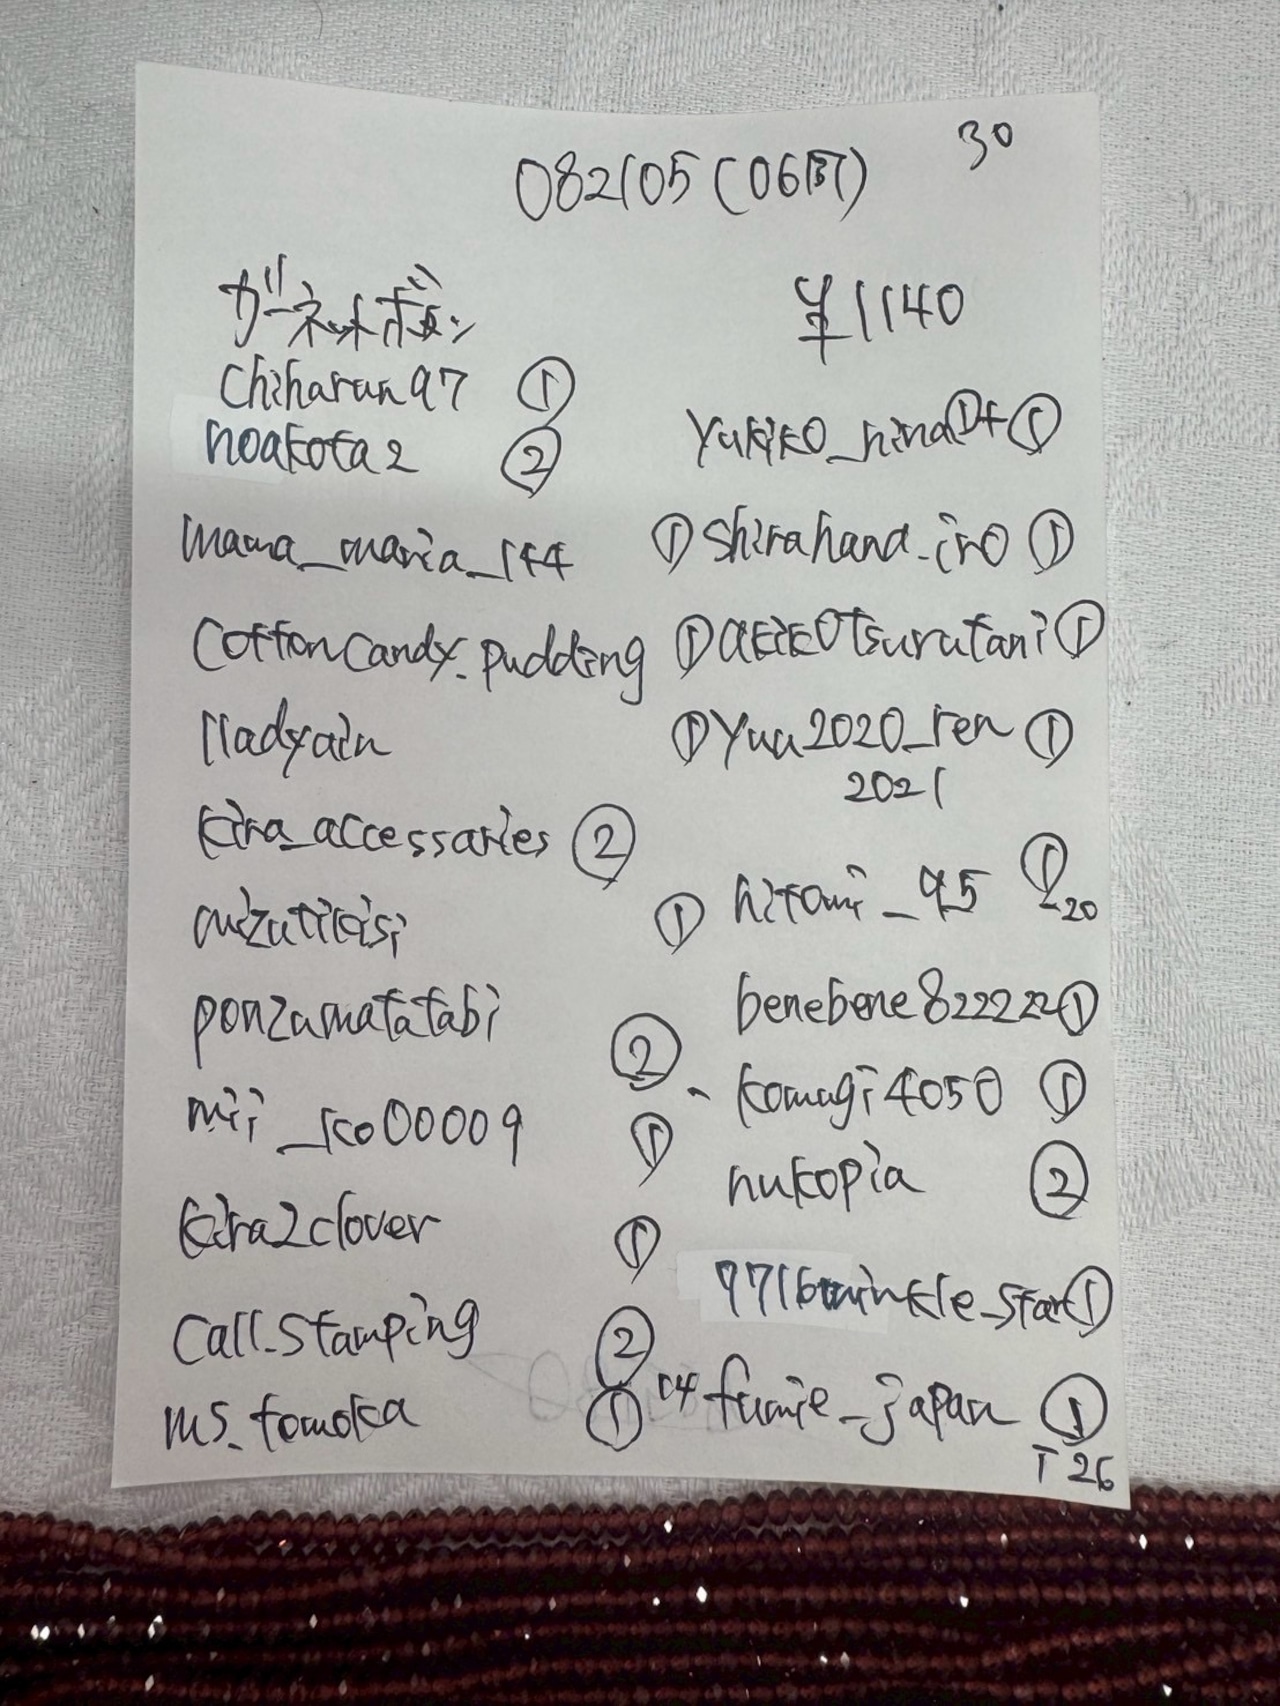 30
082105 (06那)
ガーネットボタン
¥1140
Chiharun97 ①
noakota2 ②
mama_maria_144 ①
Cottoncandy_pudding ①
lladyain ①
kira_accessaries ②
mizutikisi ①
ponzamatatabi ②
mii_ko00009 ①
kira2clover ①
Call_stamping ②
ms_tomoka ① 14
Yukiko_hina①+①
Shirahana_iro ①
akikotsurutani ①
Yuu2020_ren ①
2021
hitomi_95 ①
20
benebene822222①
komugi4050 ①
nukopia ②
7716twinkle_star①
fumie_japan ①
T 26